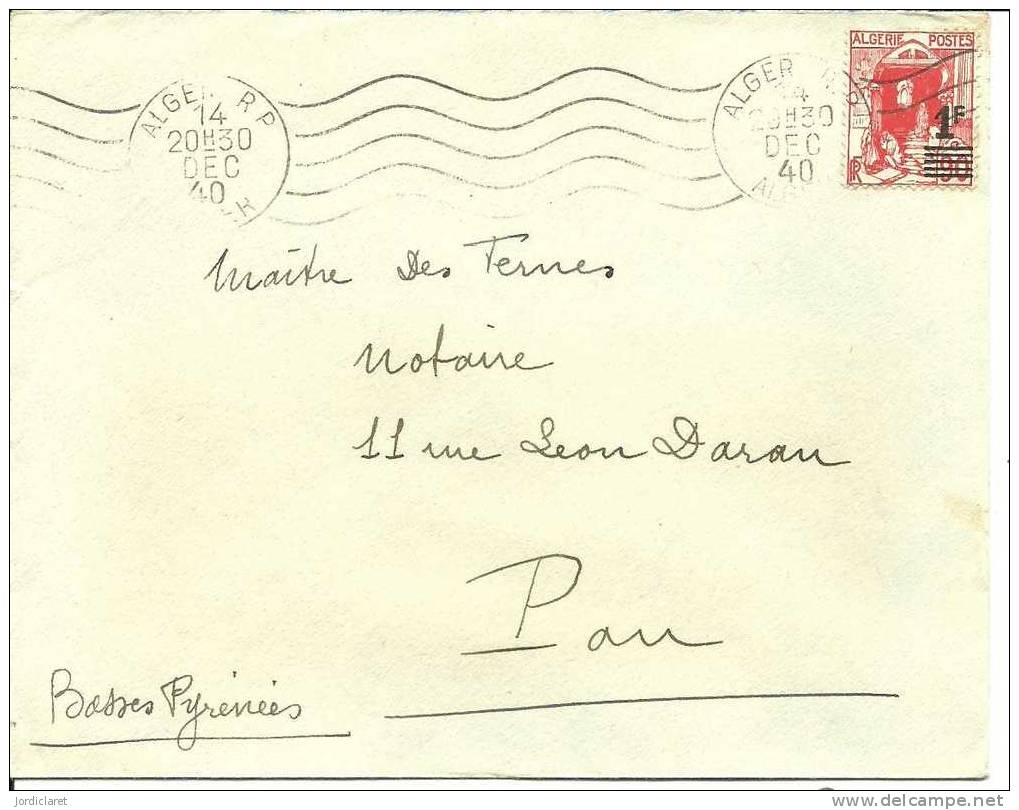 ALGER R P
14
20H30
DEC
40
ALGER R
14
20H30
DEC
40
ALGERIE POSTES
1F
90
Maître Des Ternes
Notaire
11 rue Leon Daran
Pau
Basses Pyrénées
jordiclaret
www.delcampe.net